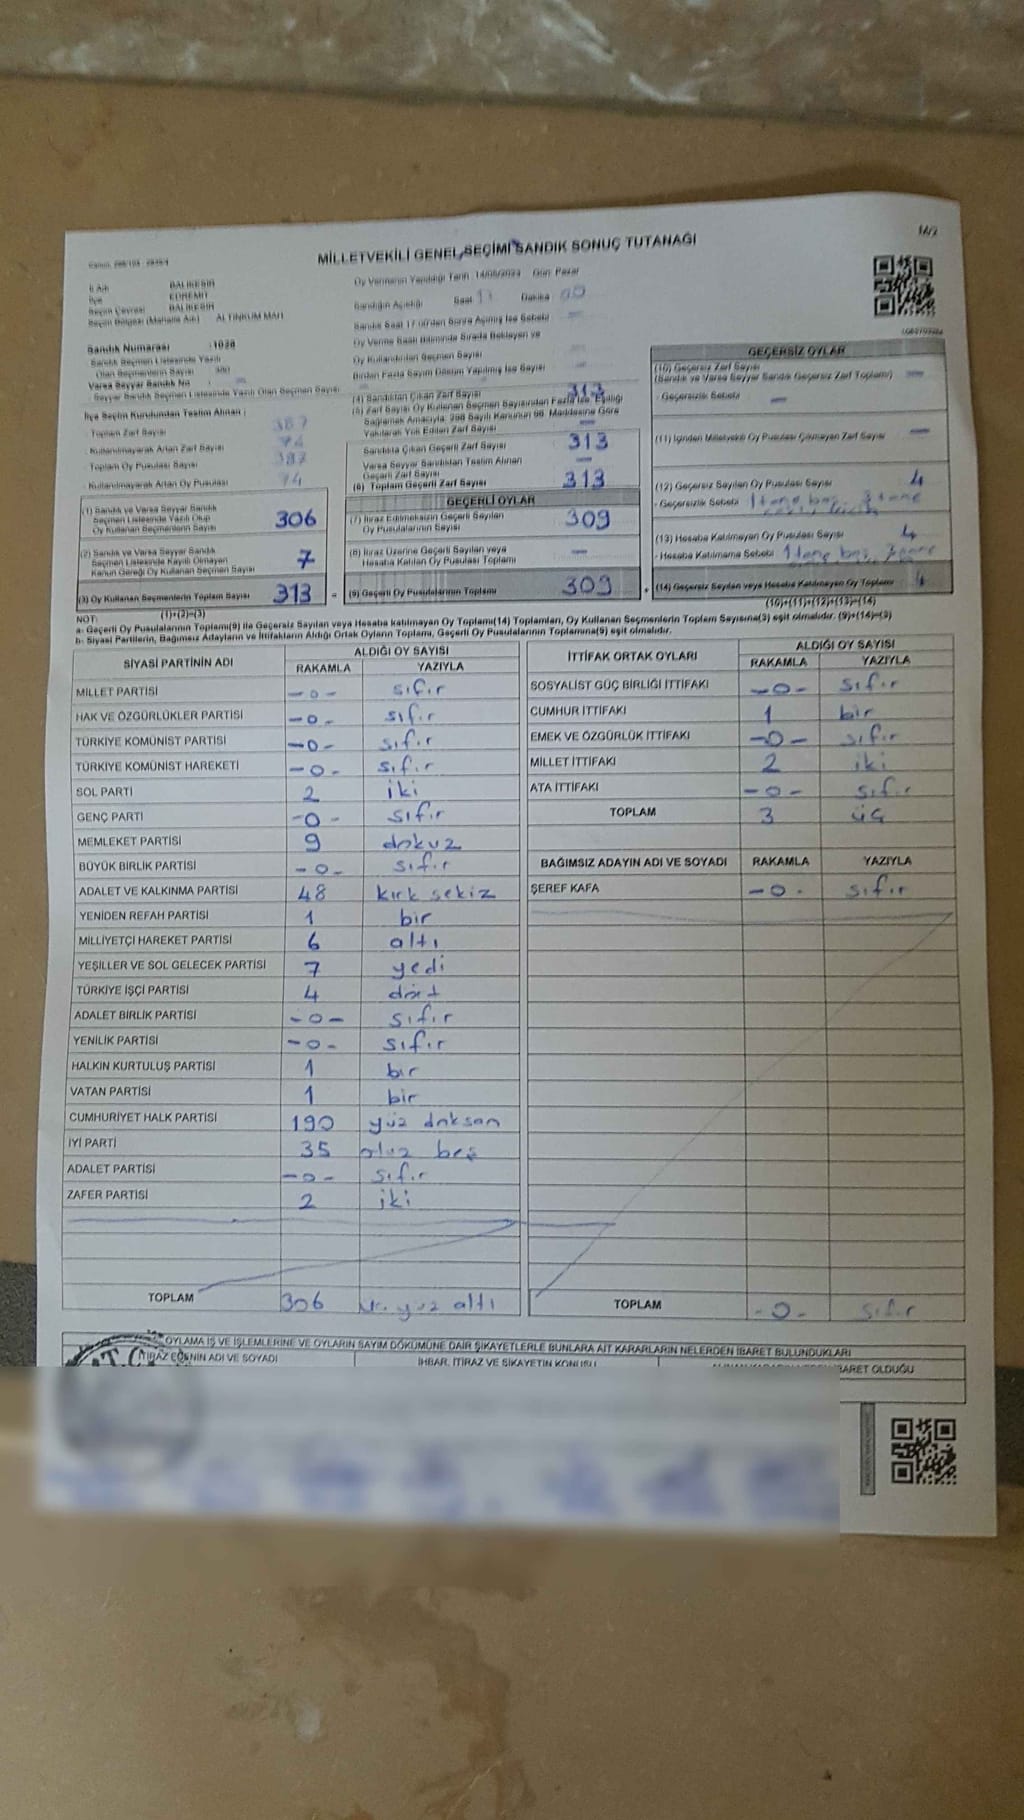 M/2
MİLLETVEKİLİ GENEL SEÇİMİ SANDIK SONUÇ TUTANAĞI
İl Adı BALIKESİR
İlçe EDREMİT
Seçim Çevresi BALIKESİR
Seçim Bölgesi (Mahalle Adı) ALTINKUM MAH
Sandık Numarası :1028
Sandık Seçmen Listesinde Yazılı
Olan Seçmenlerin Sayısı
Varsa Seyyar Sandık No
Seyyar Sandık Seçmen Listesinde Yazılı Olan Seçmen Sayısı
İlçe Seçim Kurulundan Teslim Alınan :
- Toplam Zarf Sayısı 387
- Kullanılmayarak Artan Zarf Sayısı 74
- Toplam Oy Pusulası Sayısı 387
- Kullanılmayarak Artan Oy Pusulası 74
(1) Sandık ve Varsa Seyyar Sandık
Seçmen Listesinde Yazılı Olup
Oy Kullanan Seçmenlerin Sayısı 306
(2) Sandık ve Varsa Seyyar Sandık
Seçmen Listesinde Kayıtlı Olmayan
Kanun Gereği Oy Kullanan Seçmen Sayısı 7
(3) Oy Kullanan Seçmenlerin Toplam Sayısı 313 =
(1)+(2)=(3)
Oy Vermenin Yapıldığı Tarih 14/05/2023 Gün Pazar
Sandığın Açıldığı Saat Dakika
Sandık Saat 17'den Sonra Açılmış İse Sebebi
Oy Verme Saati Bitiminde Sırada Bekleyen ve
Oy Kullandırılan Seçmen Sayısı
Birden Fazla Sayım Döküm Yapılmış İse Sayısı
(4) Sandıktan Çıkan Zarf Sayısı 313
(5) Zarf Sayısı Oy Kullanan Seçmen Sayısından Fazla İse, Eşitliği
Sağlamak Amacıyla, 298 Sayılı Kanunun 98. Maddesine Göre
Yakılarak Yok Edilen Zarf Sayısı
Sandıkta Çıkan Geçerli Zarf Sayısı 313
Varsa Seyyar Sandıktan Teslim Alınan
Geçerli Zarf Sayısı
(6) Toplam Geçerli Zarf Sayısı 313
GEÇERLİ OYLAR
(7) İtiraz Edilmeksizin Geçerli Sayılan
Oy Pusulalarının Sayısı 309
(8) İtiraz Üzerine Geçerli Sayılan veya
Hesaba Katılan Oy Pusulası Toplamı
(9) Geçerli Oy Pusulalarının Toplamı 309 +
GEÇERSİZ OYLAR
(10) Geçersiz Zarf Sayısı
(Sandık ve Varsa Seyyar Sandık Geçersiz Zarf Toplamı)
- Geçersizlik Sebebi
(11) İçinden Milletvekili Oy Pusulası Çıkmayan Zarf Sayısı
(12) Geçersiz Sayılan Oy Pusulası Sayısı 4
- Geçersizlik Sebebi 1 tane boş, 3 tane
(13) Hesaba Katılmayan Oy Pusulası Sayısı 4
- Hesaba Katılmama Sebebi 1 tane boş, 3 tane
(14) Geçersiz Sayılan veya Hesaba Katılmayan Oy Toplamı 4
(10)+(11)+(12)+(13)=(14)
NOT:
a- Geçerli Oy Pusulalarının Toplamı(9) ile Geçersiz Sayılan veya Hesaba katılmayan Oy Toplamı(14) Toplamları, Oy Kullanan Seçmenlerin Toplam Sayısına(3) eşit olmalıdır. (9)+(14)=(3)
b- Siyasi Partilerin, Bağımsız Adayların ve İttifakların Aldığı Ortak Oyların Toplamı, Geçerli Oy Pusulalarının Toplamına(9) eşit olmalıdır.
SİYASİ PARTİNİN ADI ALDIĞI OY SAYISI
RAKAMLA YAZIYLA
MİLLET PARTİSİ -0- sıfır
HAK VE ÖZGÜRLÜKLER PARTİSİ -0- sıfır
TÜRKİYE KOMÜNİST PARTİSİ -0- sıfır
TÜRKİYE KOMÜNİST HAREKETİ -0- sıfır
SOL PARTİ 2 iki
GENÇ PARTİ -0- sıfır
MEMLEKET PARTİSİ 9 dokuz
BÜYÜK BİRLİK PARTİSİ -0- sıfır
ADALET VE KALKINMA PARTİSİ 48 kırk sekiz
YENİDEN REFAH PARTİSİ 1 bir
MİLLİYETÇİ HAREKET PARTİSİ 6 altı
YEŞİLLER VE SOL GELECEK PARTİSİ 7 yedi
TÜRKİYE İŞÇİ PARTİSİ 4 dört
ADALET BİRLİK PARTİSİ -0- sıfır
YENİLİK PARTİSİ -0- sıfır
HALKIN KURTULUŞ PARTİSİ 1 bir
VATAN PARTİSİ 1 bir
CUMHURİYET HALK PARTİSİ 190 yüz doksan
İYİ PARTİ 35 otuz beş
ADALET PARTİSİ -0- sıfır
ZAFER PARTİSİ 2 iki
TOPLAM 306 üç yüz altı
İTTİFAK ORTAK OYLARI ALDIĞI OY SAYISI
RAKAMLA YAZIYLA
SOSYALİST GÜÇ BİRLİĞİ İTTİFAKI -0- sıfır
CUMHUR İTTİFAKI 1 bir
EMEK VE ÖZGÜRLÜK İTTİFAKI -0- sıfır
MİLLET İTTİFAKI 2 iki
ATA İTTİFAKI -0- sıfır
TOPLAM 3 üç
BAĞIMSIZ ADAYIN ADI VE SOYADI RAKAMLA YAZIYLA
ŞEREF KAFA -0- sıfır
TOPLAM -0- sıfır
OYLAMA İŞ VE İŞLEMLERİNE VE OYLARIN SAYIM DÖKÜMÜNE DAİR ŞİKAYETLERLE BUNLARA AİT KARARLARIN NELERDEN İBARET BULUNDUKLARI
İTİRAZ EDENİN ADI VE SOYADI İHBAR, İTİRAZ VE ŞİKAYETİN KONUSU İBARET OLDUĞU